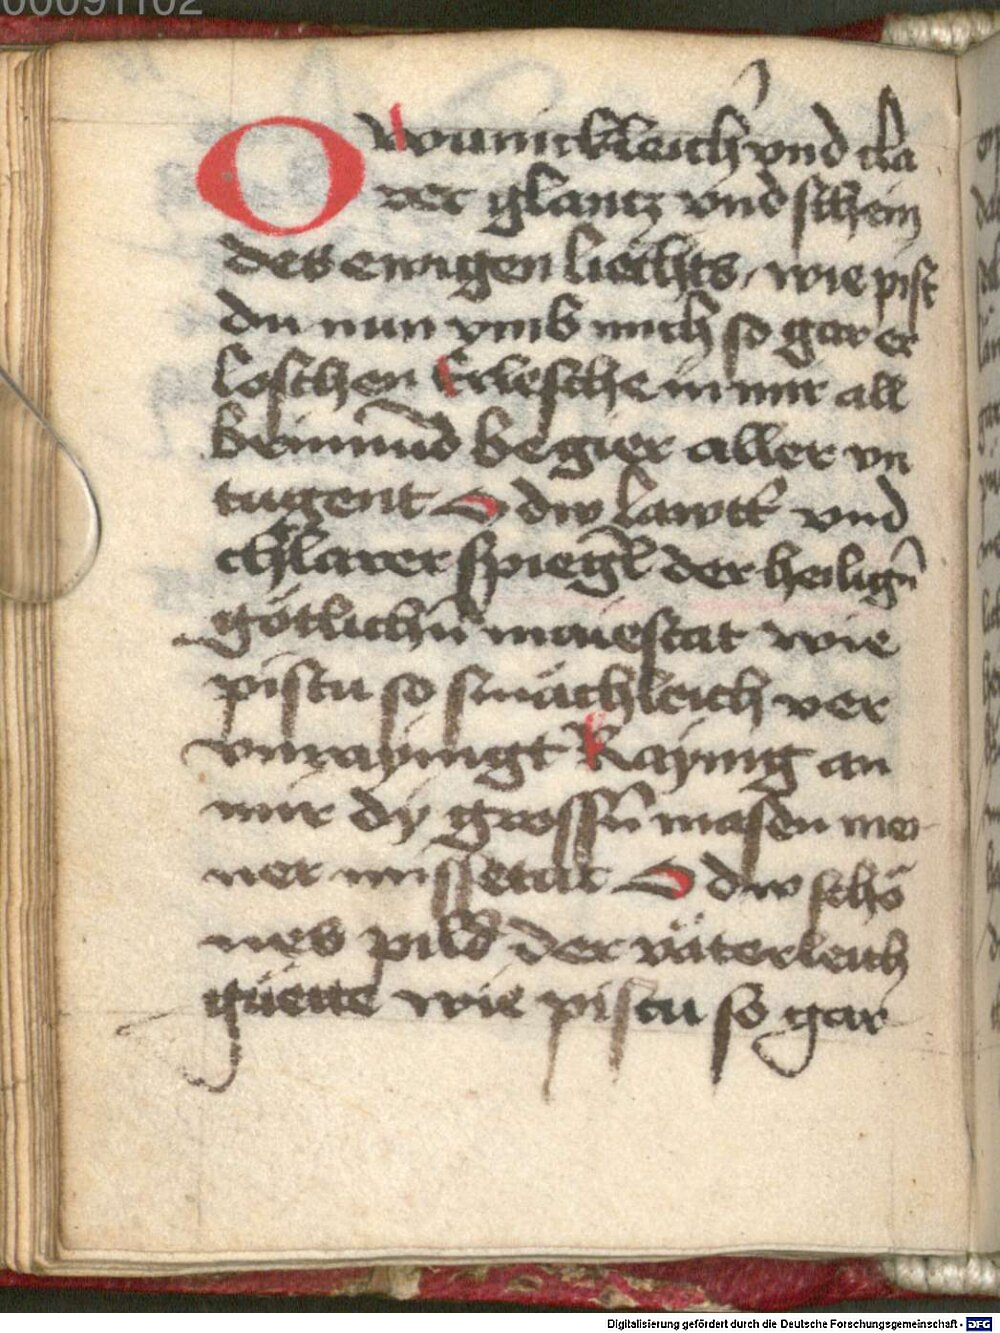 00091102
O wunickleich vnd cla
rer glantz vnd schein
des ewigen liechts, wie pist
du nun vmb mich so gar er
loschen Erlesche in mir all
beinmu̅d begier aller vn
tugent O du lawtt̅ vnd
chlarer spiegl̅ der heilig̅n
götlich̅n maiestat wie
pistu so smächleich ver
vnraynigt Raynig an
mir dy gross̅n masen mei
ner missetat O du schö
nes pild der väterleich
güette wie pistu so gar
Digitalisierung gefördert durch die Deutsche Forschungsgemeinschaft - DFG